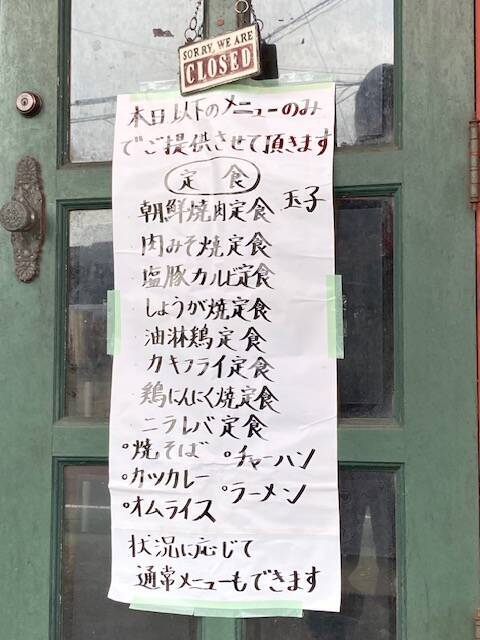 SORRY, WE ARE
CLOSED
本日以下のメニューのみ
でご提供させて頂きます
定食
朝鮮焼肉定食 玉子
肉みそ焼定食
塩豚カルビ定食
しょうが焼定食
油淋鶏定食
カキフライ定食
鶏にんにく焼定食
ニラレバ定食
°焼そば °チャーハン
°カツカレー
°ラーメン
°オムライス
状況に応じて
通常メニューもできます